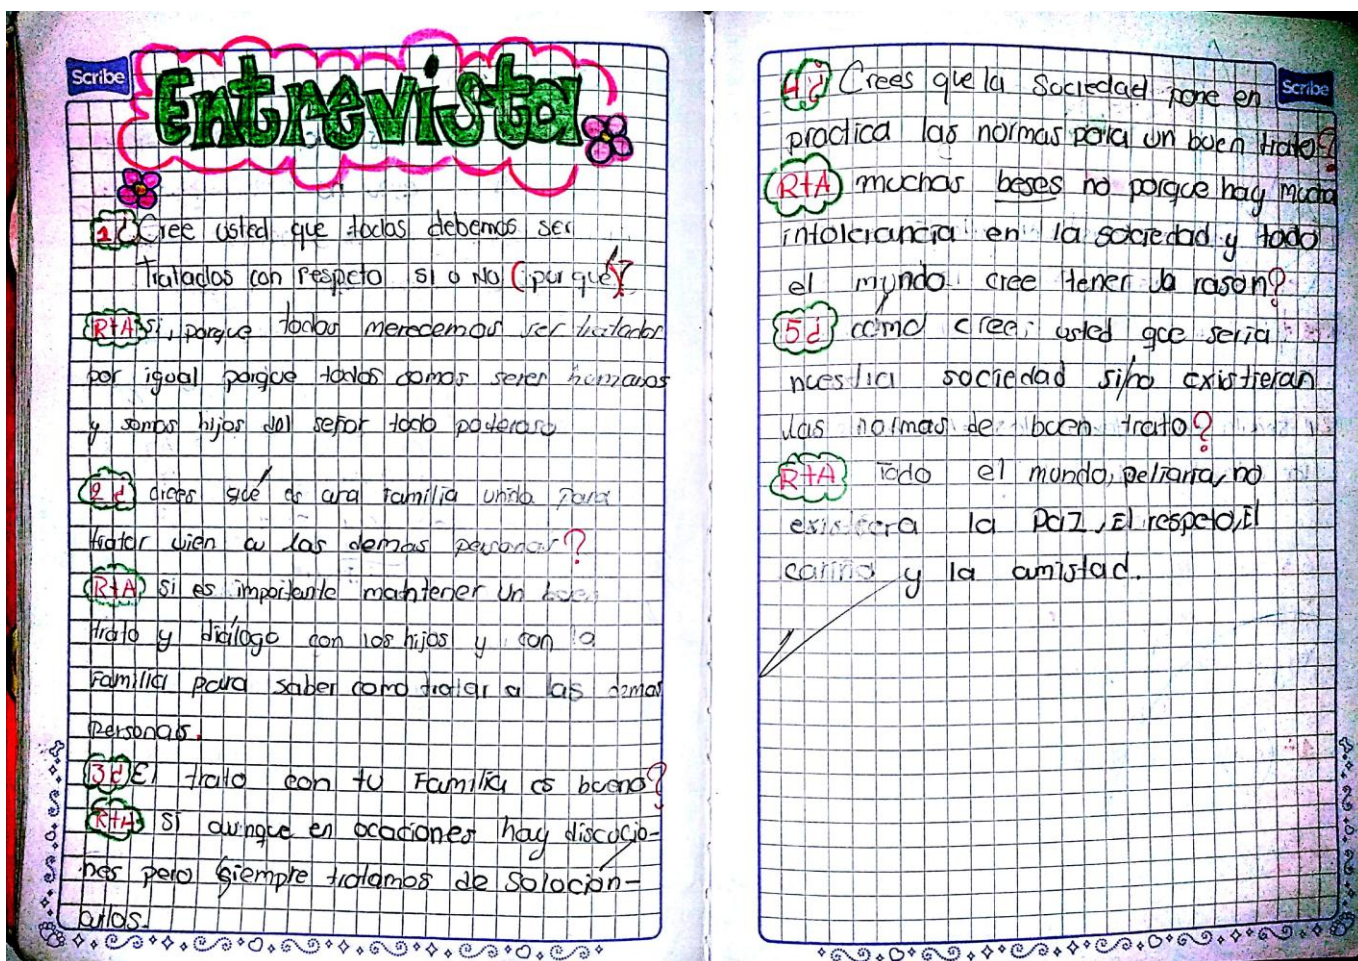 Scribe
Entrevista
1¿ Cree usted que todos debemos ser
tratados con respeto si o No (¿por qué)?
RtA si, porque todos merecemos ser tratados
por igual porque todos somos seres humanos
y somos hijos del señor todo poderoso
2¿ es una Familia unida para
tratar bien a las demas personas?
RtA si es importante mantener un buen
trato y diálogo con los hijos y con la
Familia para saber como tratar a las demas
personas.
3¿ El trato con tu Familia es bueno?
RtA Si aunque en ocaciones hay discucio-
nes pero siempre tratamos de solocion-
arlos.
Scribe
4¿ Crees que la Sociedad pone en
practica las normas para un buen trato?
RtA muchas beses no porque hay mucha
intolerancia en la sociedad y todo
el mundo cree tener la rason?
5¿ cómo cree usted que seria
nuestra sociedad si no existieran
las normas de buen trato?
RtA Todo el mundo, peliaria, no
existiera la Paz, El respeto, El
cariño y la amistad.